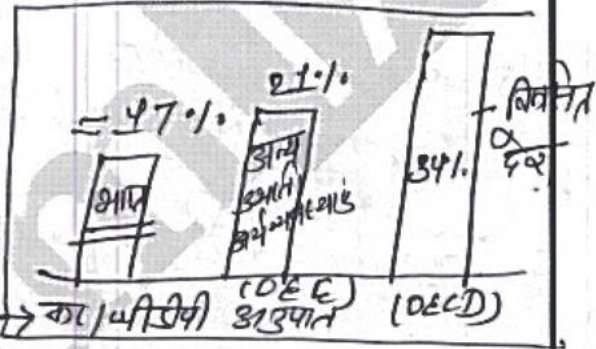 21%
= 17%
भारत
अन्य
उभरती
अर्थव्यवस्थाएं
34%
विकसित
देश
(OEE)
(OECD)
→ कर/जीडीपी अनुपात